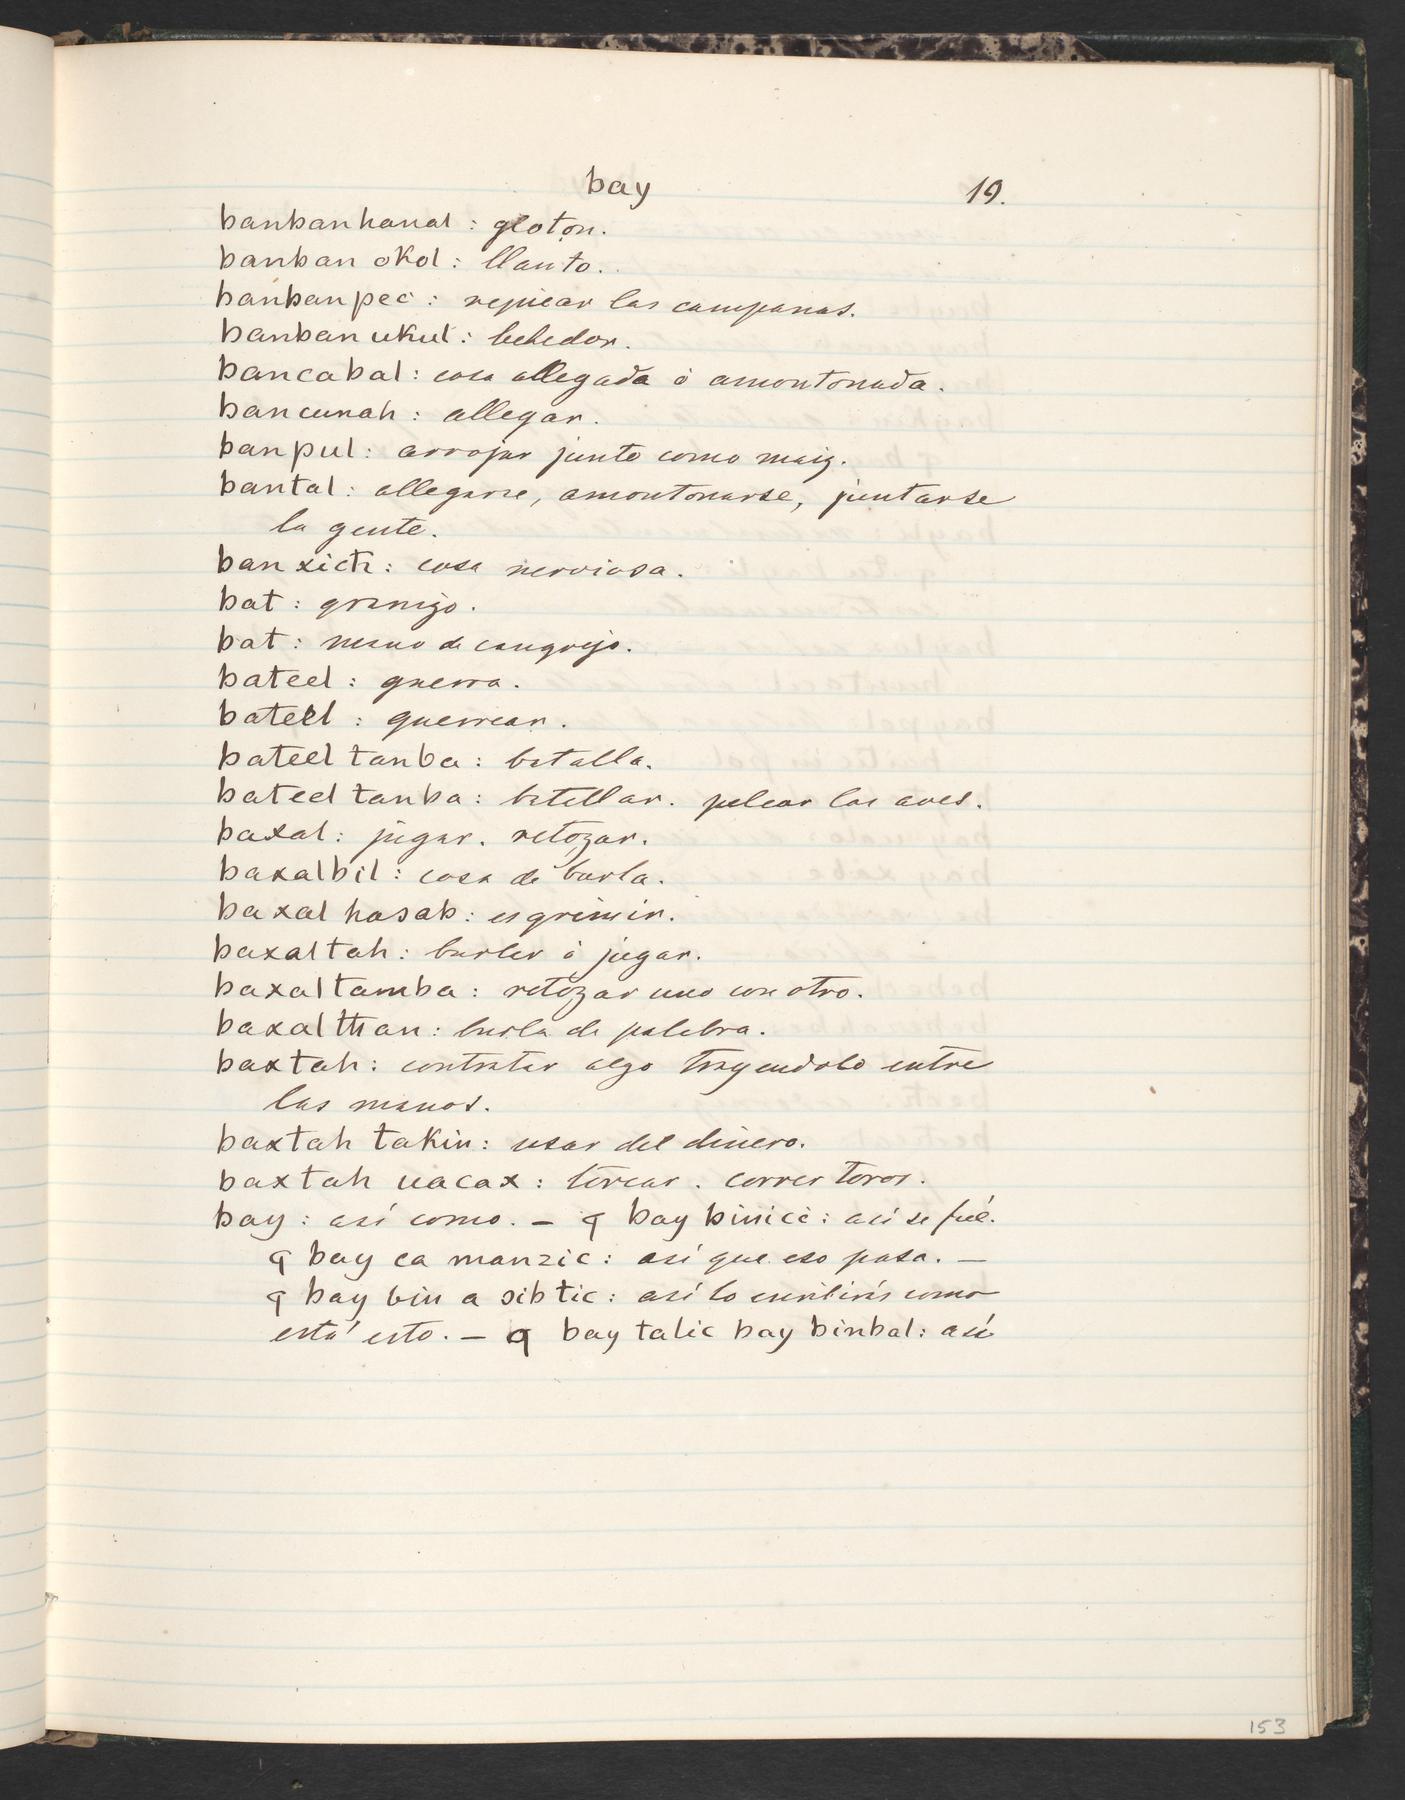 bay 19.
banbanhanal : gloton.
banban okol : llanto.
banbanpec : repicar las campanas.
banban ukul : bebedor.
bancabal : cosa allegada ò amontonada.
bancunah : allegar.
banpul : arrojar junto como maiz.
bantal : allegarse, amontonarse, juntarse
la gente.
banxich : cosa nerviosa.
bat : granizo.
bat : mano de cangrejo.
bateel : guerra.
bateel : guerrear.
bateel tanba : batalla.
bateel tanba : batallar. pelear las aves.
baxal : jugar. retozar.
baxalbil : cosa de burla.
baxal hasab : esgrimir.
baxaltah : burlar ò jugar.
baxaltamba : retozar uno con otro.
baxalthan : burla de palabra.
baxtah : contratar algo trayendolo entre
las manos.
baxtah takin : usar del dinero.
baxtah uacax : torear. correr toros.
bay : así como. — ꟼ bay binici : así se fué.
ꟼ bay ca manzic : así que eso pasa. —
ꟼ bay bin a oibtic : así lo escribirás como
está esto. — ꟼ bay talic bay binbal : así
153